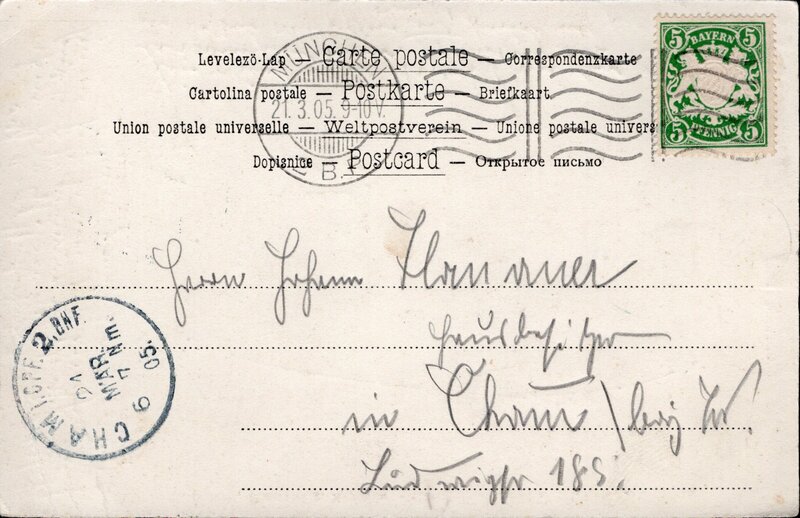 Levelezö-Lap — Carte postale — Correspondenzkarte
Cartolina postale — Postkarte — Briefkaart
Union postale universelle — Weltpostverein — Unione postale univers
Dopisnice — Postcard — Открытое письмо
MÜNCHEN
21.3.05.9-10V.
B.
5 BAYERN 5
5 PFENNIG 5
Herrn Johann
Hausbesitzer
in Cham / bay. W.
Ludwigstr
CHAM 2.BHF.
21
MÄR.
7 Nm.
05.